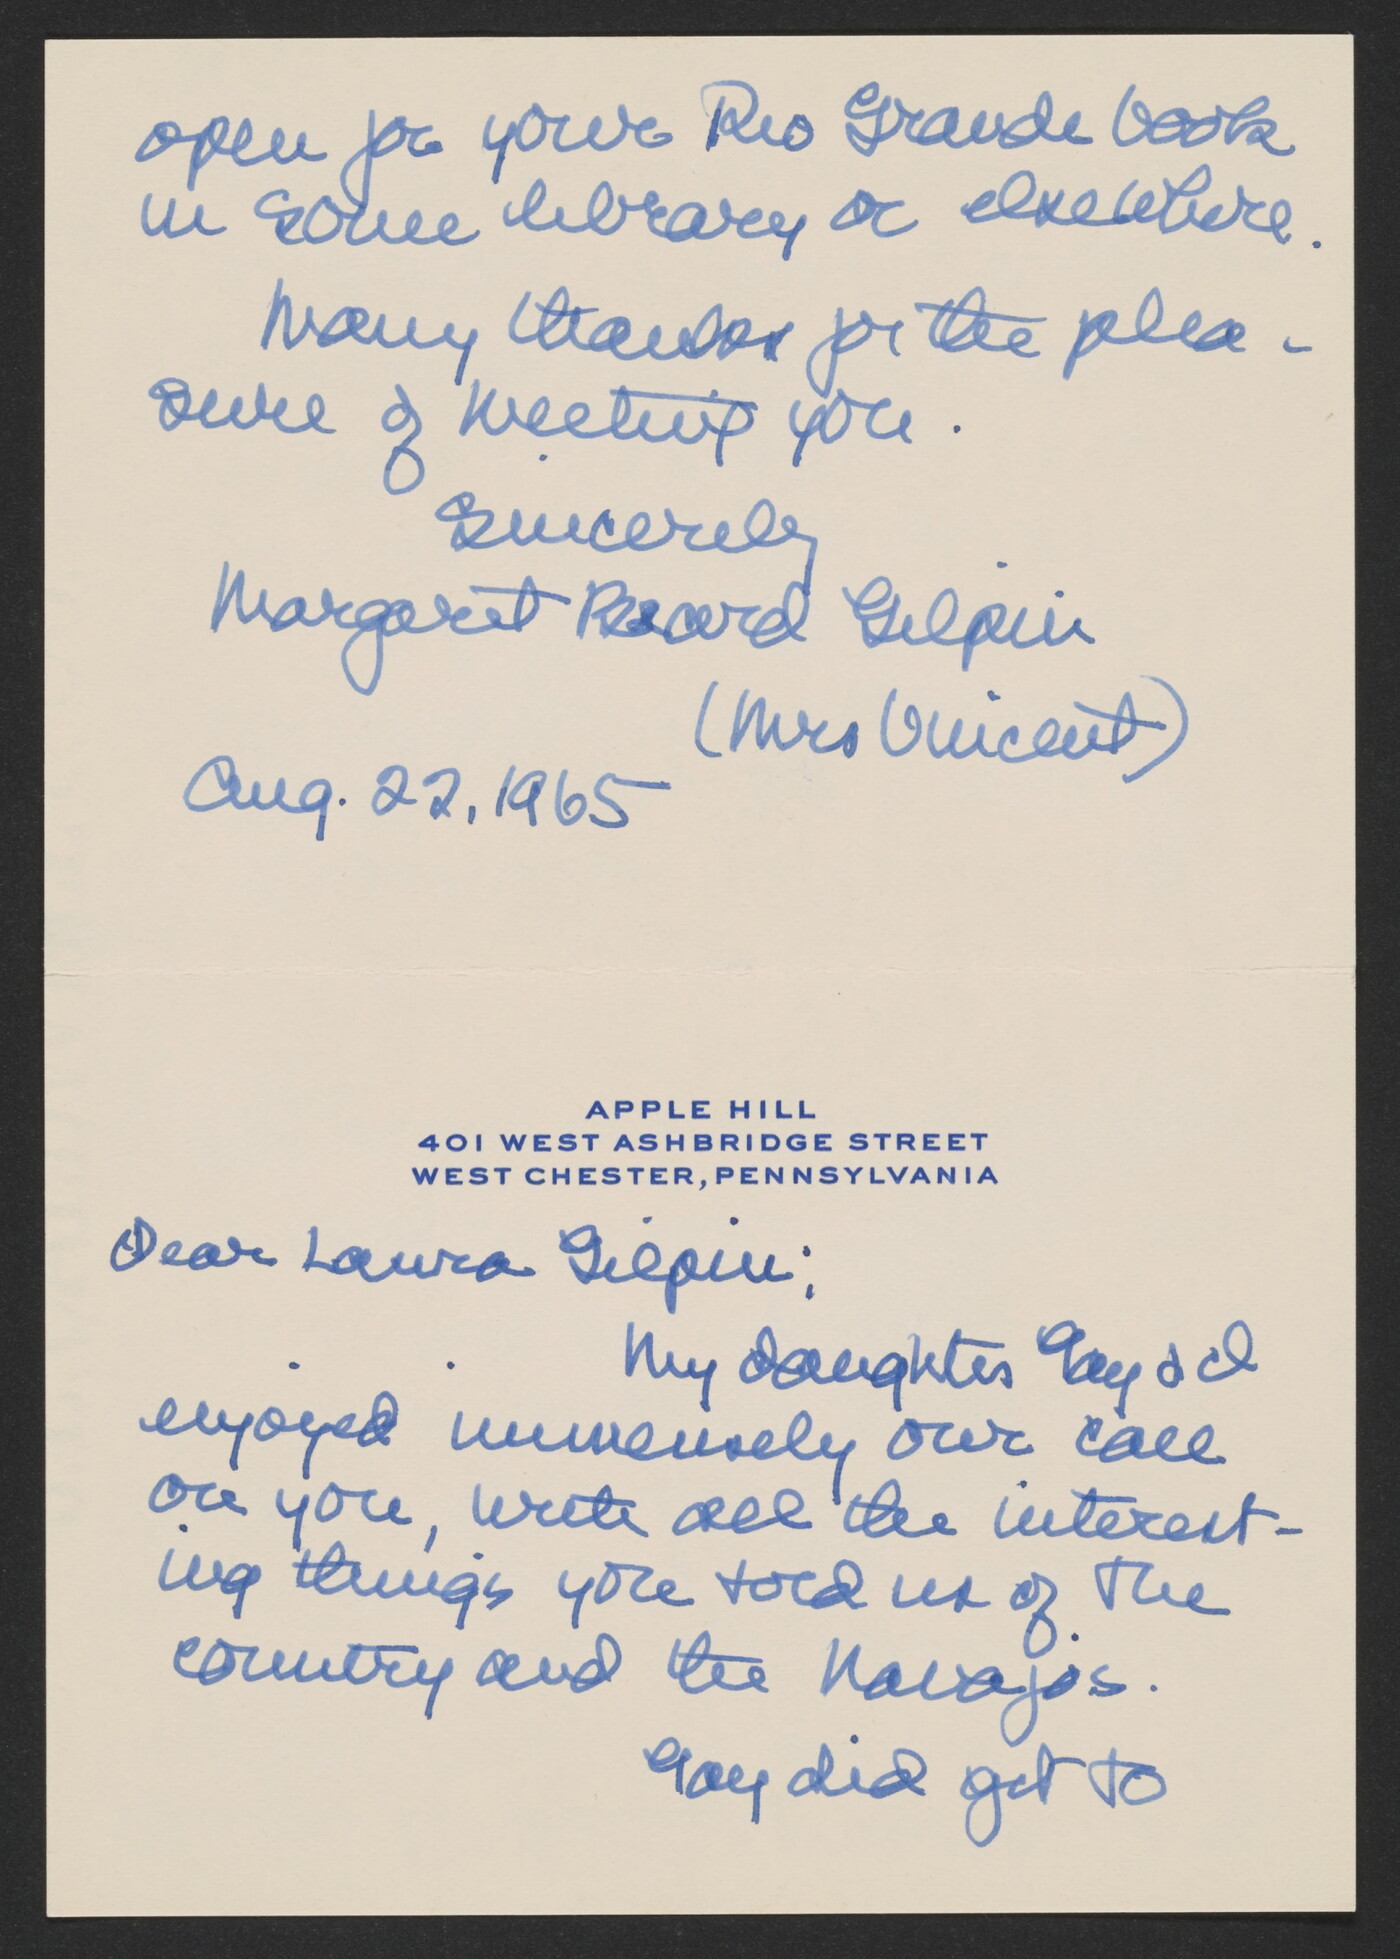 open for your Rio Grande book
in some library or elsewhere.
Many thanks for the plea-
sure of meeting you.
Sincerely
Margaret Gilpin
(Mrs Vincent)
Aug. 22, 1965
APPLE HILL
401 WEST ASHBRIDGE STREET
WEST CHESTER, PENNSYLVANIA
Dear Laura Gilpin:
My daughter Gay & I
enjoyed immensely our call
on you, with all the interest-
ing things you told us of the
country and the Navajos.
Gay did get to